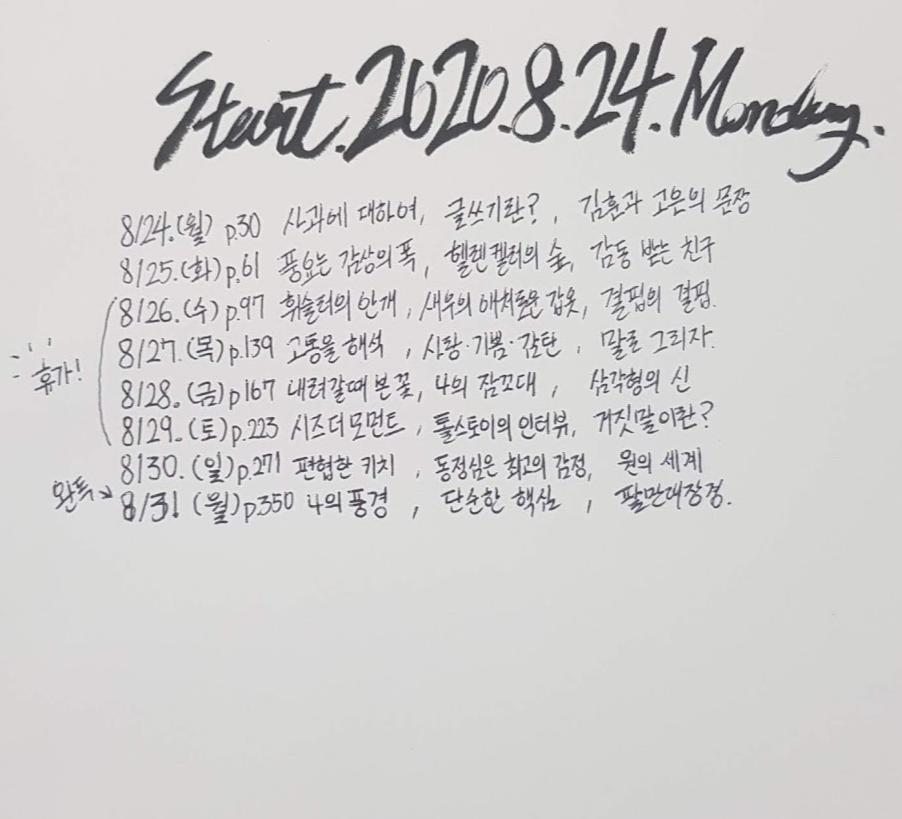 Start. 2020. 8. 24. Monday.
8/24.(월) p.30 사과에 대하여, 글쓰기란?, 김훈과 고은의 문장
8/25.(화) p.61 풍요는 감상의 폭, 헬렌켈러의 숲, 감동 받는 친구
8/26.(수) p.97 휘슬러의 안개, 새우의 애처로운 갑옷, 결핍의 결핍.
8/27.(목) p.139 고통을 해석, 사랑·기쁨·감탄, 말로 그리자.
휴가!
8/28. (금) p167 내려갈때 본 꽃, 4의 잠꼬대, 삼각형의 신
8/29. (토) p.223 시즈더모먼트, 톨스토이의 인터뷰, 거짓말이란?
8/30. (일) p.271 편협한 키치, 동정심은 최고의 감정, 원의 세계
완독↘ 8/31 (월) p.350 4의 풍경, 단순한 핵심, 팔만대장경.